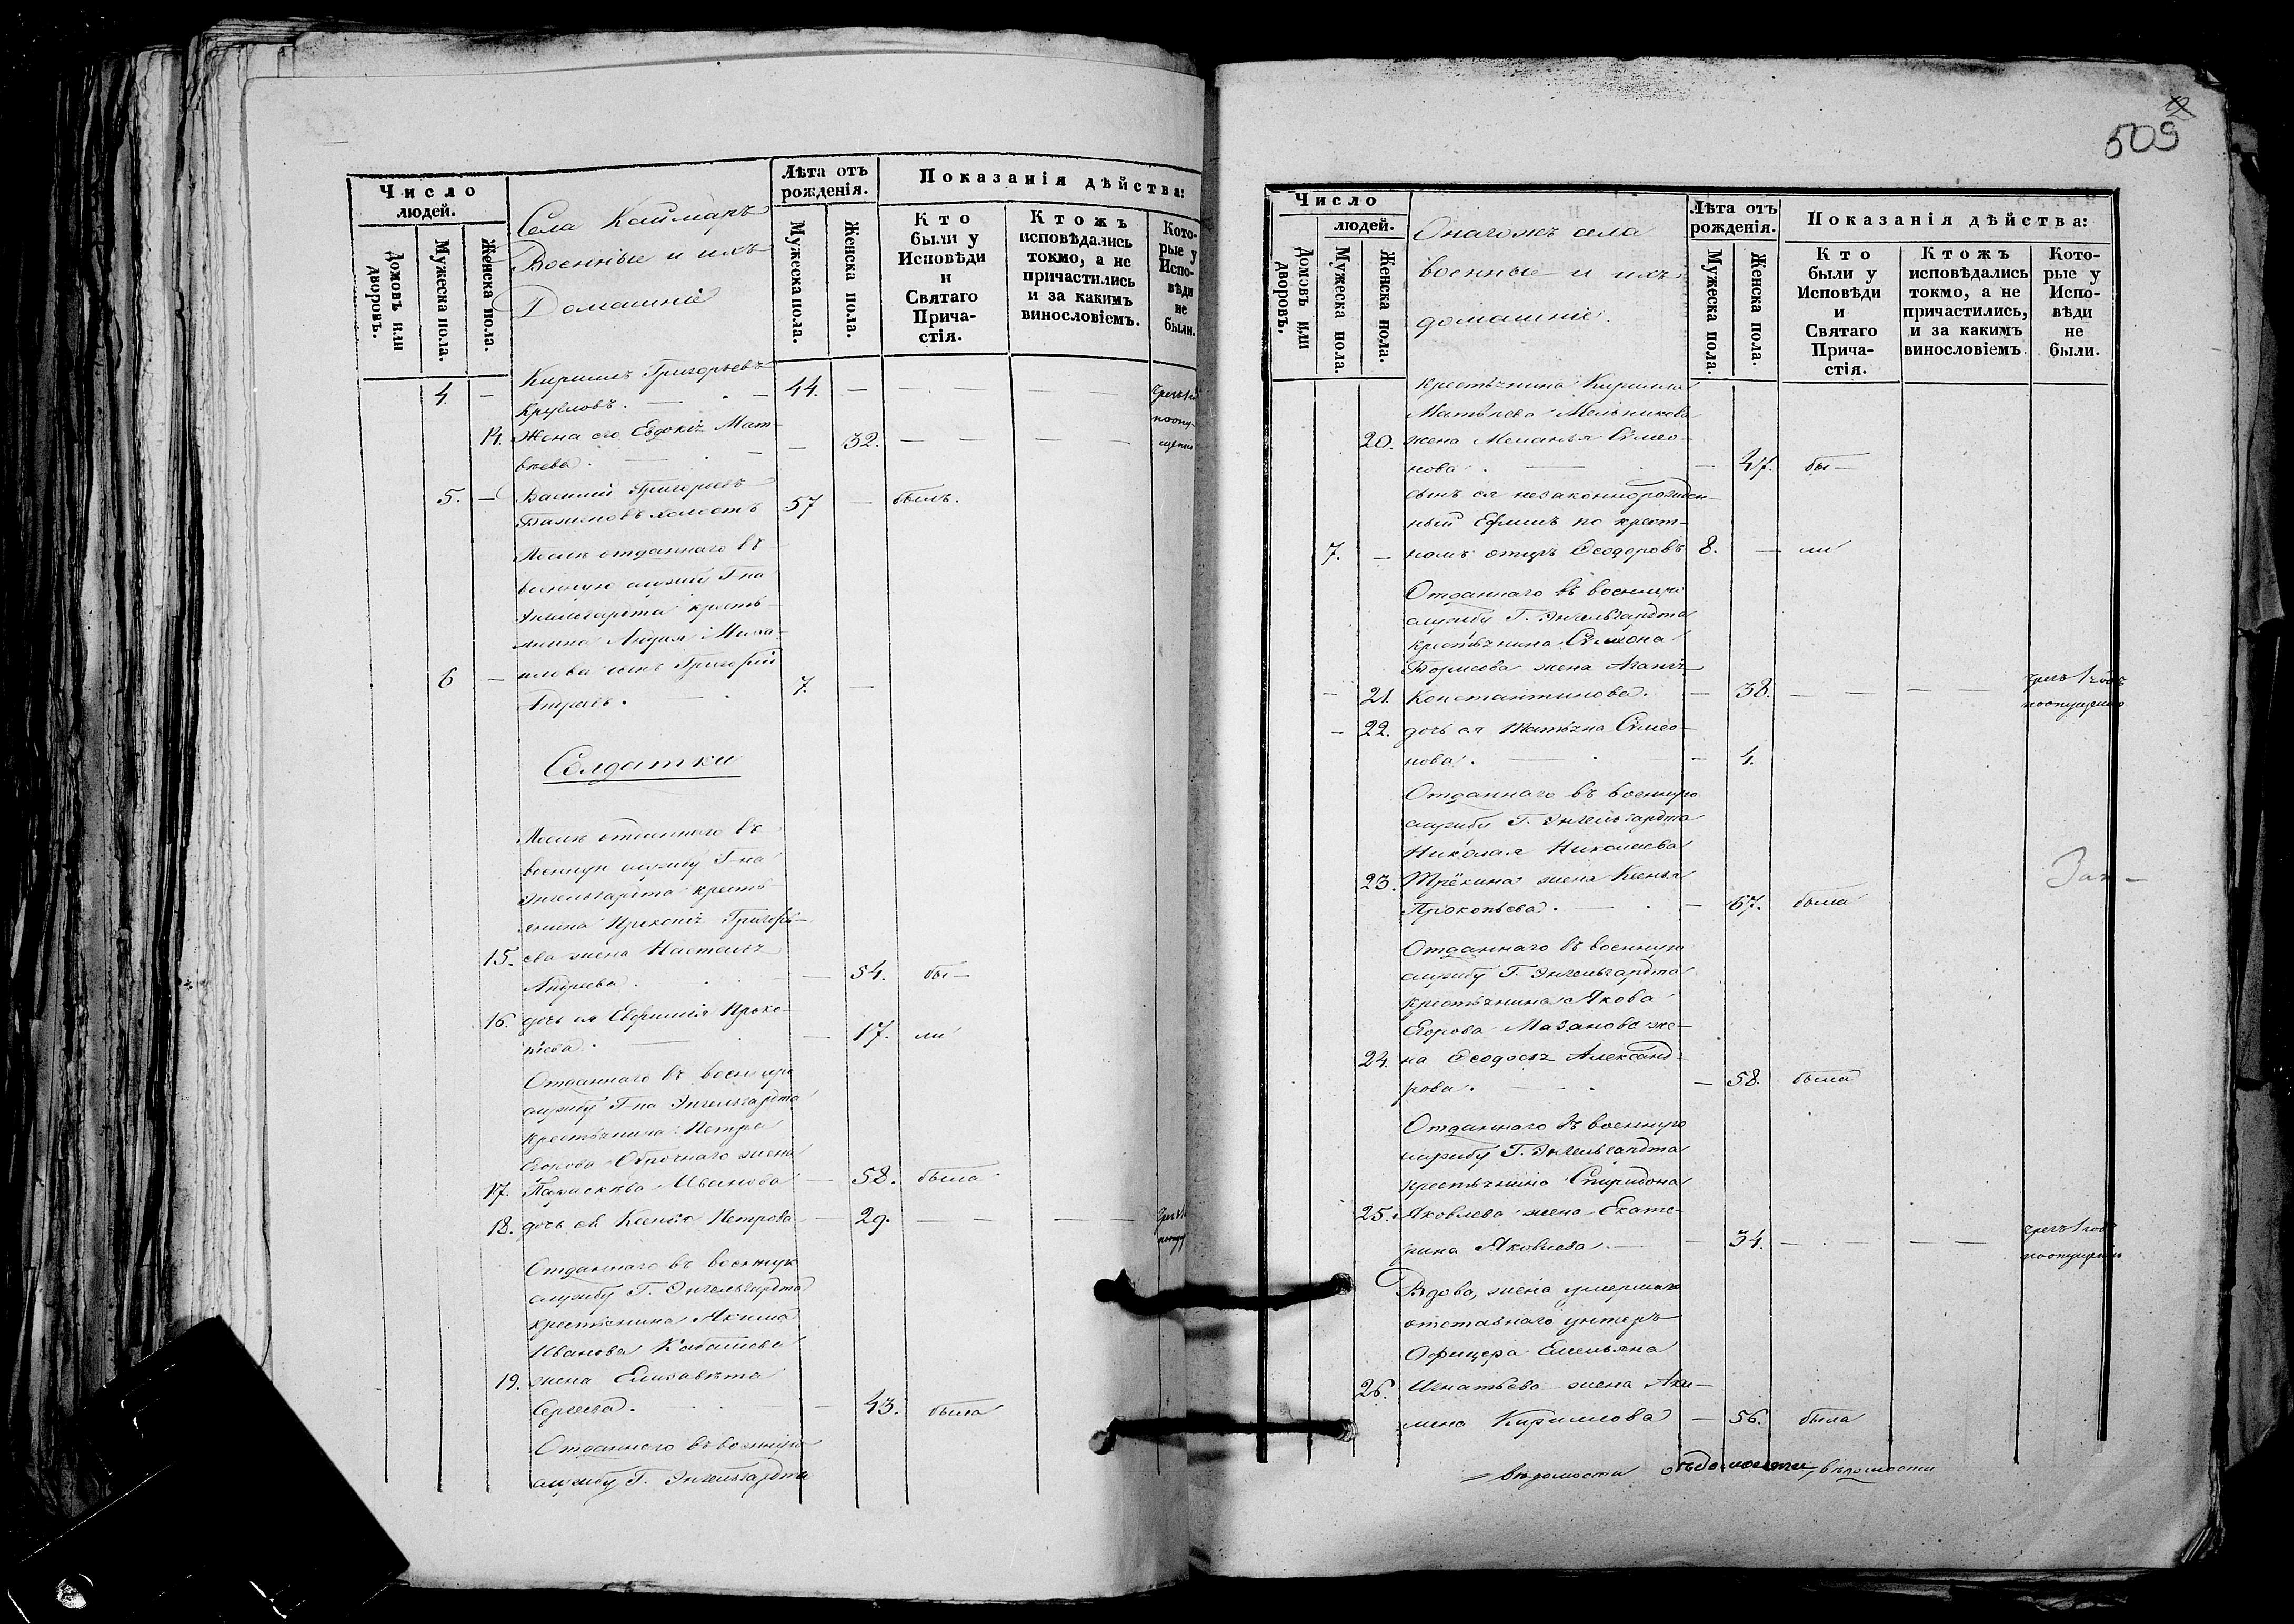 Число людей.
Домовъ или дворовъ.
Мужеска пола.
Женска пола.
Села Каймаръ
Военные и ихъ
Домашніе
Лѣта отъ рожденія.
Мужеска пола.
Женска пола.
Показанія дѣйства:
Кто были у Исповѣди и Святаго Прича-стія.
Ктожъ исповѣдались токмо, а не причастились и за какимъ винословіемъ.
Кото-рые у Испо-вѣди не были.
4. — Кирилъ Григорьевъ
Кругловъ. — 44. —
14. Жена его Евдокія Мат-
вѣева. — 32. —
5. — Василий Григорьевъ
холостъ 57 — былъ.
Послѣ отданнаго въ
военную службу Г-на
Энгельгардта кресть-
янина Андрея Миха-
6 — лова сынъ Григорій
Андреевъ. 7. —
Солдатки
Послѣ отданнаго въ
военную службу Г-на
Энгельгардта кресть-
янина Прокопія Григорь-
15. ева жена Настасья
Андреева. — 54. бы—
16. дочь ея Евфимія Проко-
піева. — 17. ли
Отданнаго въ военную
службу Г-на Энгельгардта
крестьянина Петра
Егорова жена
17. Параскева Иванова — 58. была
18. дочь ея Ксенія Петрова — 29. —
Отданнаго въ военную
службу Г. Энгельгардта
крестьянина Акима
Иванова
19. жена Елизавета
Сергеева. — 43. была
Отданнаго въ военную
службу Г. Энгельгардта
509
Число
людей.
Домовъ или дворовъ.
Мужеска пола.
Женска пола.
Онагожъ села
военные и ихъ
домашніе.
Лѣта отъ рожденія.
Мужеска пола.
Женска пола.
Показанія дѣйства:
Кто были у Исповѣди и Святаго Прича-стія.
Ктожъ исповѣдались токмо, а не причастились, и за какимъ винословіемъ.
Кото-рые у Испо-вѣди не были.
крестьянина Кирилла
Матвѣева Мельникова
20. жена Меланья Симео-
нова. — 47. бы—
сынъ ея незаконнорожден-
ный Ефимъ по крест-
7. — номъ отцѣ Ѳеодоровъ 8. — ли
Отданнаго въ военную
службу Г. Энгельгардта
крестьянина Симона
Борисова жена Агапія
— 21. Константинова. — 38. — — чрезъ 1 годъ
по опущенію
— 22. дочь ея Татьяна Симео-
нова. — 4.
Отданнаго въ военную
службу Г. Энгельгардта
Николая Николаева
23. жена Ксенья
Прокопьева. — 67. была
Отданнаго въ военную
службу Г. Энгельгардта
крестьянина Якова
Егорова Мазанова же-
24. на Ѳеодосья Александ-
рова. — 58. была
Отданнаго въ военную
службу Г. Энгельгардта
крестьянина Спиридона
25. Яковлева жена Екате-
рина Яковлева. — 34. — — чрезъ 1 годъ
по опущенію
Вдова, жена умершаго
отставнаго унтеръ
Офицера Емельяна
26. Игнатьева жена Аки-
лина Кириллова — 56. была
вѣдомости вѣдомости